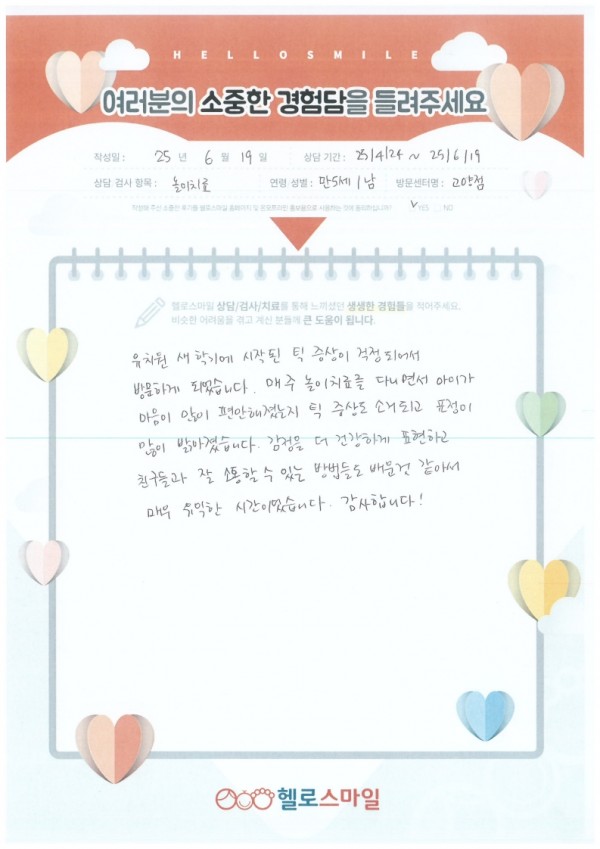 HELLOSMILE
여러분의 소중한 경험담을 들려주세요
작성일 : 25 년 6 월 19 일 상담 기간 : 25/4/24 ~ 25/6/19
상담 검사 항목 : 놀이치료 연령 성별 : 만5세 / 남 방문센터명 : 고양점
작성해 주신 소중한 후기를 헬로스마일 홈페이지 및 온오프라인 홍보용으로 사용하는것에 동의하십니까? ✓YES NO
헬로스마일 상담/검사/치료를 통해 느끼셨던 생생한 경험들을 적어주세요.
비슷한 어려움을 겪고 계신 분들께 큰 도움이 됩니다.
유치원 새 학기에 시작된 틱 증상이 걱정되어서
방문하게 되었습니다. 매주 놀이치료를 다니면서 아이가
마음이 많이 편안해졌는지 틱 증상도 소거되고 표정이
많이 밝아졌습니다. 감정을 더 건강하게 표현하고
친구들과 잘 소통할 수 있는 방법들도 배운것 같아서
매우 유익한 시간이었습니다. 감사합니다!
헬로스마일